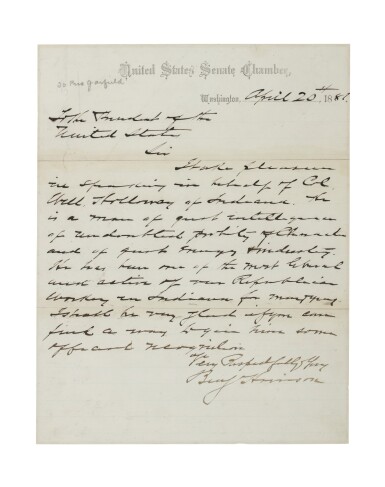 United States Senate Chamber,
to Pres Garfield
Washington, April 20th 1881.
To the President of the
United States
Sir
I take pleasure
in speaking in behalf of Col.
Holloway of Indiana. He
is a man of great intelligence
of undoubted probity of Character
and of great energy & industry.
He has been one of the most liberal
and active of our Republican
workers in Indiana for many years.
I shall be very glad if you can
find a way to give him some
official recognition
Very Respectfully Yours
Benj Harrison